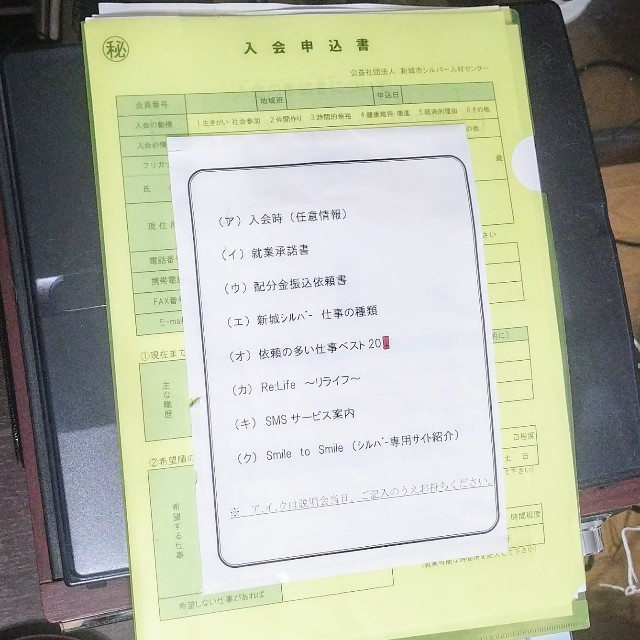 秘
入会申込書
公益社団法人 新城市シルバー人材センター
会員番号 地域班 申込日
入会の動機 1 生きがい・社会参加 2 仲間作り 3 時間的余裕 4 健康維持・増進 5 経済的理由 6 その他
入会の情 の他
フリガ 歳
氏
現住所
電話番
携帯電
FAX番
E-mail
(ア) 入会時 (任意情報)
(イ) 就業承諾書
(ウ) 配分金振込依頼書
(エ) 新城シルバー 仕事の種類
(オ) 依頼の多い仕事ベスト20
(カ) Re:Life ～リライフ～
(キ) SMSサービス案内
(ク) Smile to Smile (シルバー専用サイト紹介)
※ ア、イ、ウは説明会当日、ご記入のうえお持ちください。
①現在まで
主な職歴
②希望職の
日程度
土 日
希望する仕事
時間程度
希望しない仕事があれば